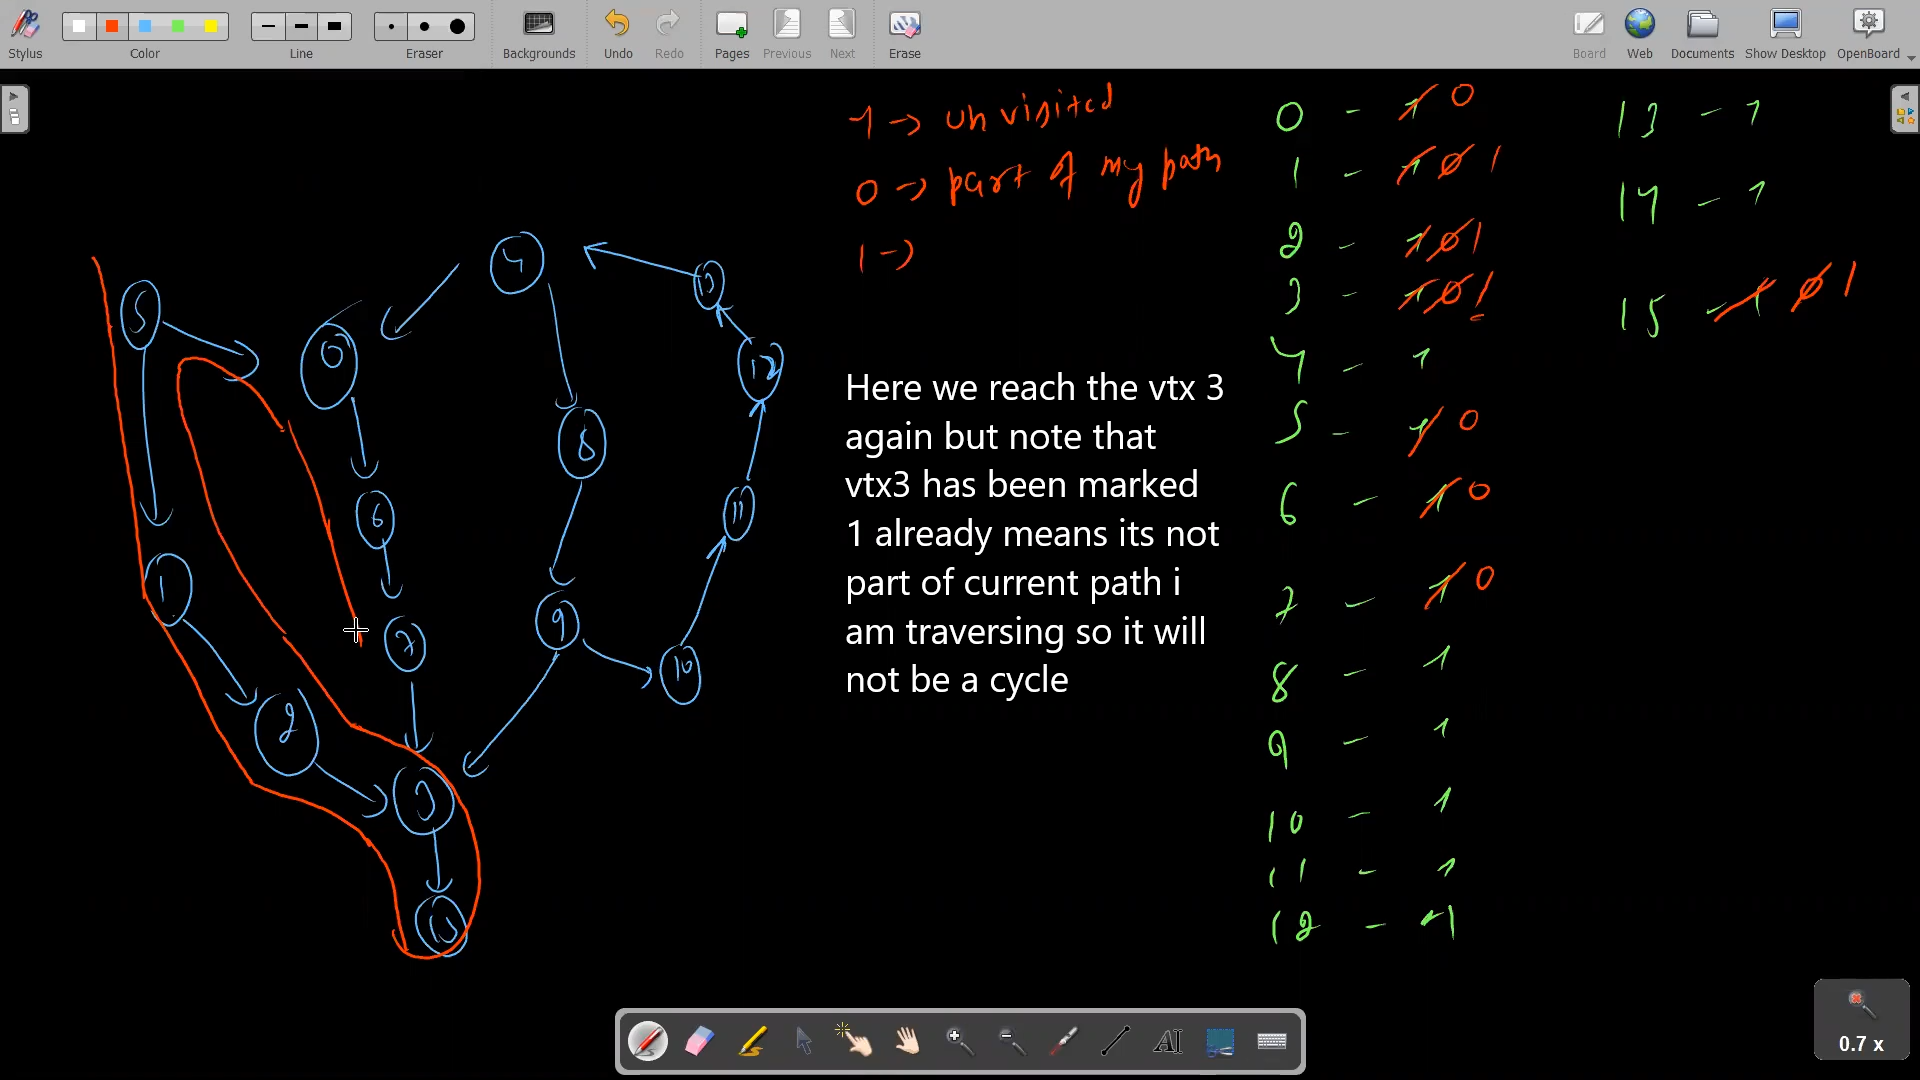 Stylus
Color
Line
Eraser
Backgrounds
Undo
Redo
Pages
Previous
Next
Erase
Board
Web
Documents
Show Desktop
OpenBoard
-1 -> unvisited
0 -> part of my path
1 ->
Here we reach the vtx 3
again but note that
vtx3 has been marked
1 already means its not
part of current path i
am traversing so it will
not be a cycle
0 - -1 0
1 - -1 0 1
2 - -1 0 1
3 - -1 0 1
4 - -1
5 - -1 0
6 - -1 0
7 - -1 0
8 - -1
9 - -1
10 - -1
11 - -1
12 - -1
13 - -1
14 - -1
15 - -1 0 1
5
0
4
13
12
8
6
11
1
9
7
10
2
3
0.7 x